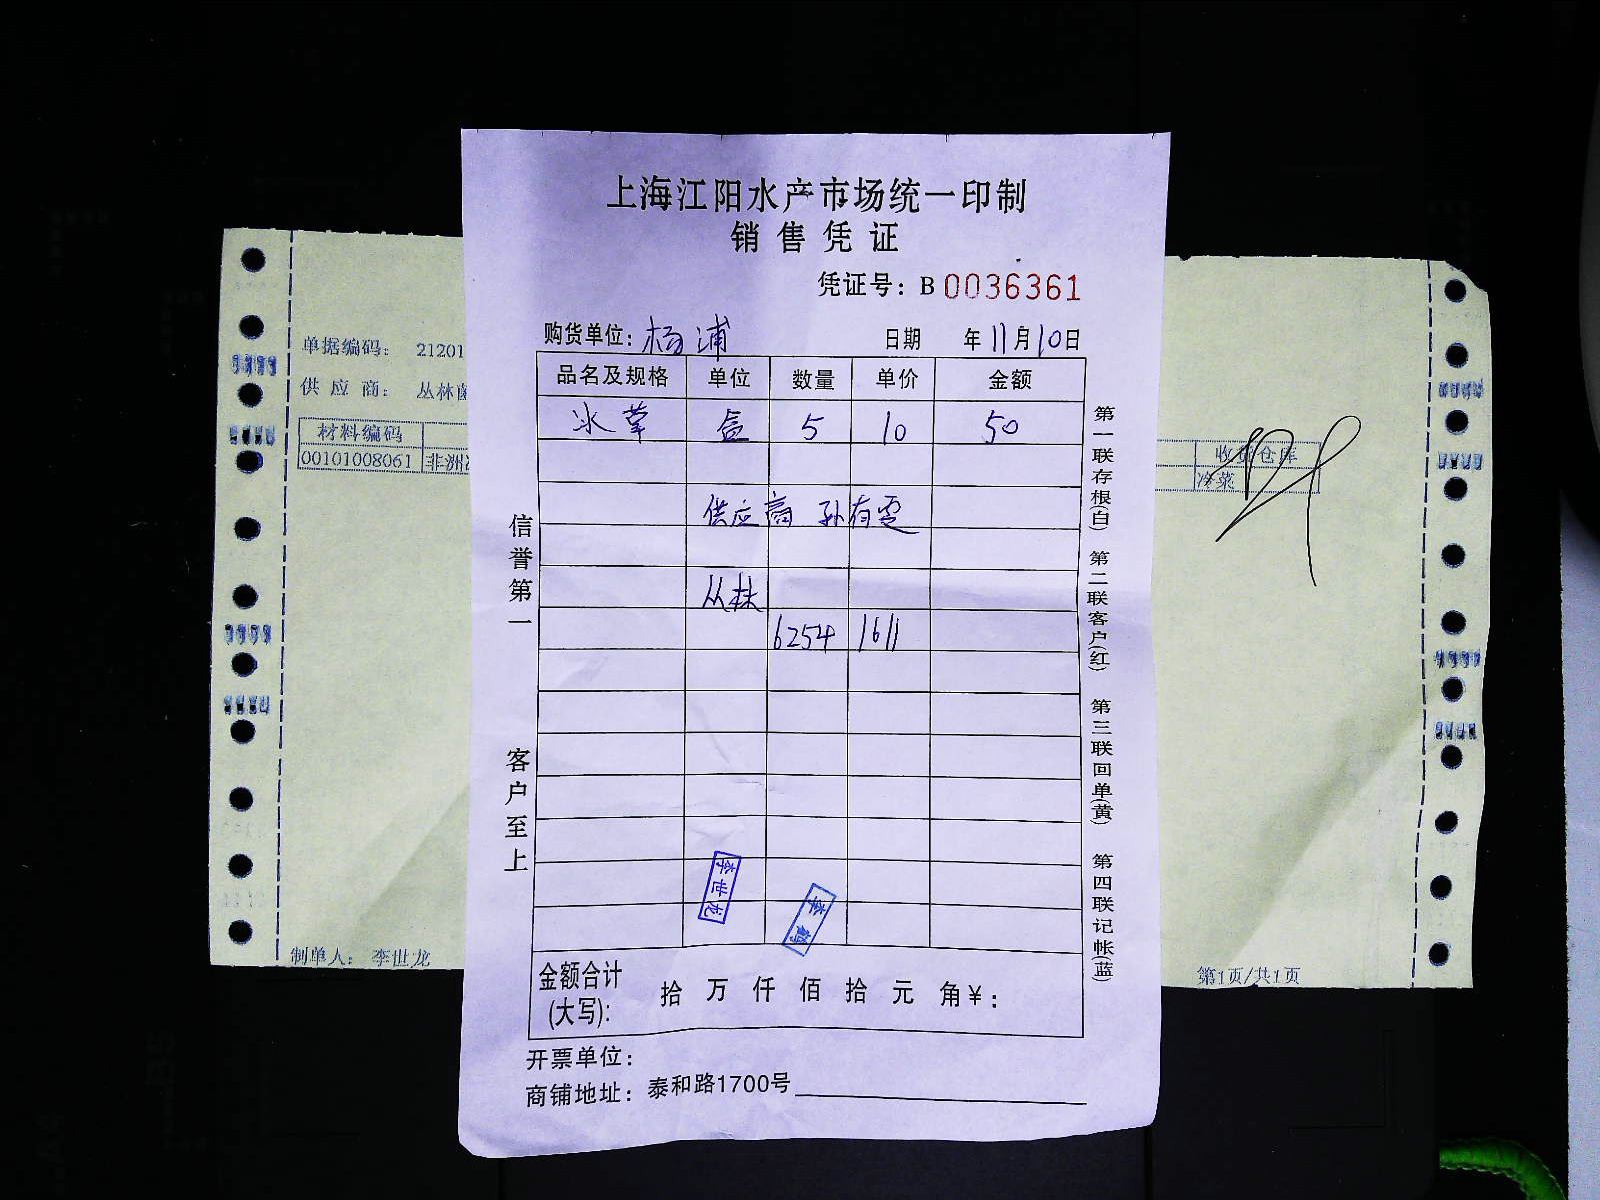 上海江阳水产市场统一印制
销售凭证
凭证号：B 0036361
购货单位：杨浦 日期 年11月10日
品名及规格 单位 数量 单价 金额
冰草 盒 5 10 50
供应商 孙有霞
丛林
6254 1611
李世龙
金额合计(大写): 拾 万 仟 佰 拾 元 角¥：
开票单位：
商铺地址：泰和路1700号
信誉第一 客户至上
第一联存根(白) 第二联客户(红) 第三联回单(黄) 第四联记帐(蓝)
单据编码： 21201
供应商： 丛林
材料编码
00101008061 非洲
制单人： 李世龙
收货仓库
冷菜
第1页/共1页